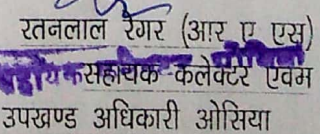 रतनलाल रेगर (आर ए एस)
सहायक कलेक्टर एवम
उपखण्ड अधिकारी ओसिया